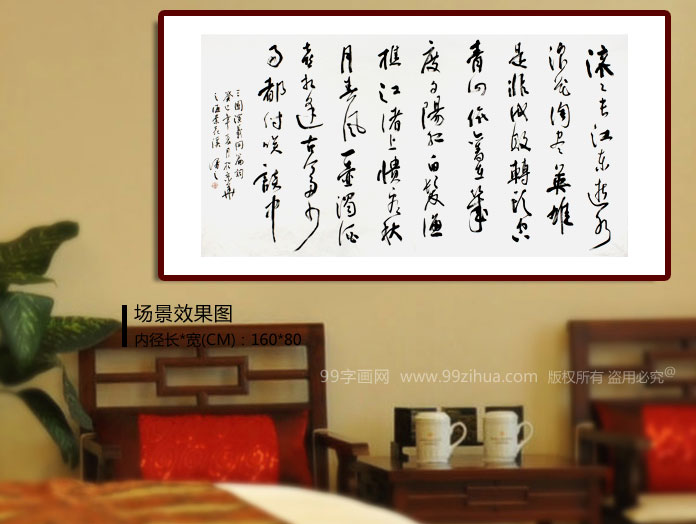 滚々长江东逝水
浪花淘尽英雄
是非成败轉頭空
青山依舊在几
度夕陽红白髮渔
樵江渚上惯看秋
月春风一壶濁酒
喜相逢古今多少
事都付笑谈中
三國演義開篇詞
癸巳年夏月於京華
场景效果图
内径长*宽(CM)：160*80
99字画网 www.99zihua.com 版权所有 盗用必究@